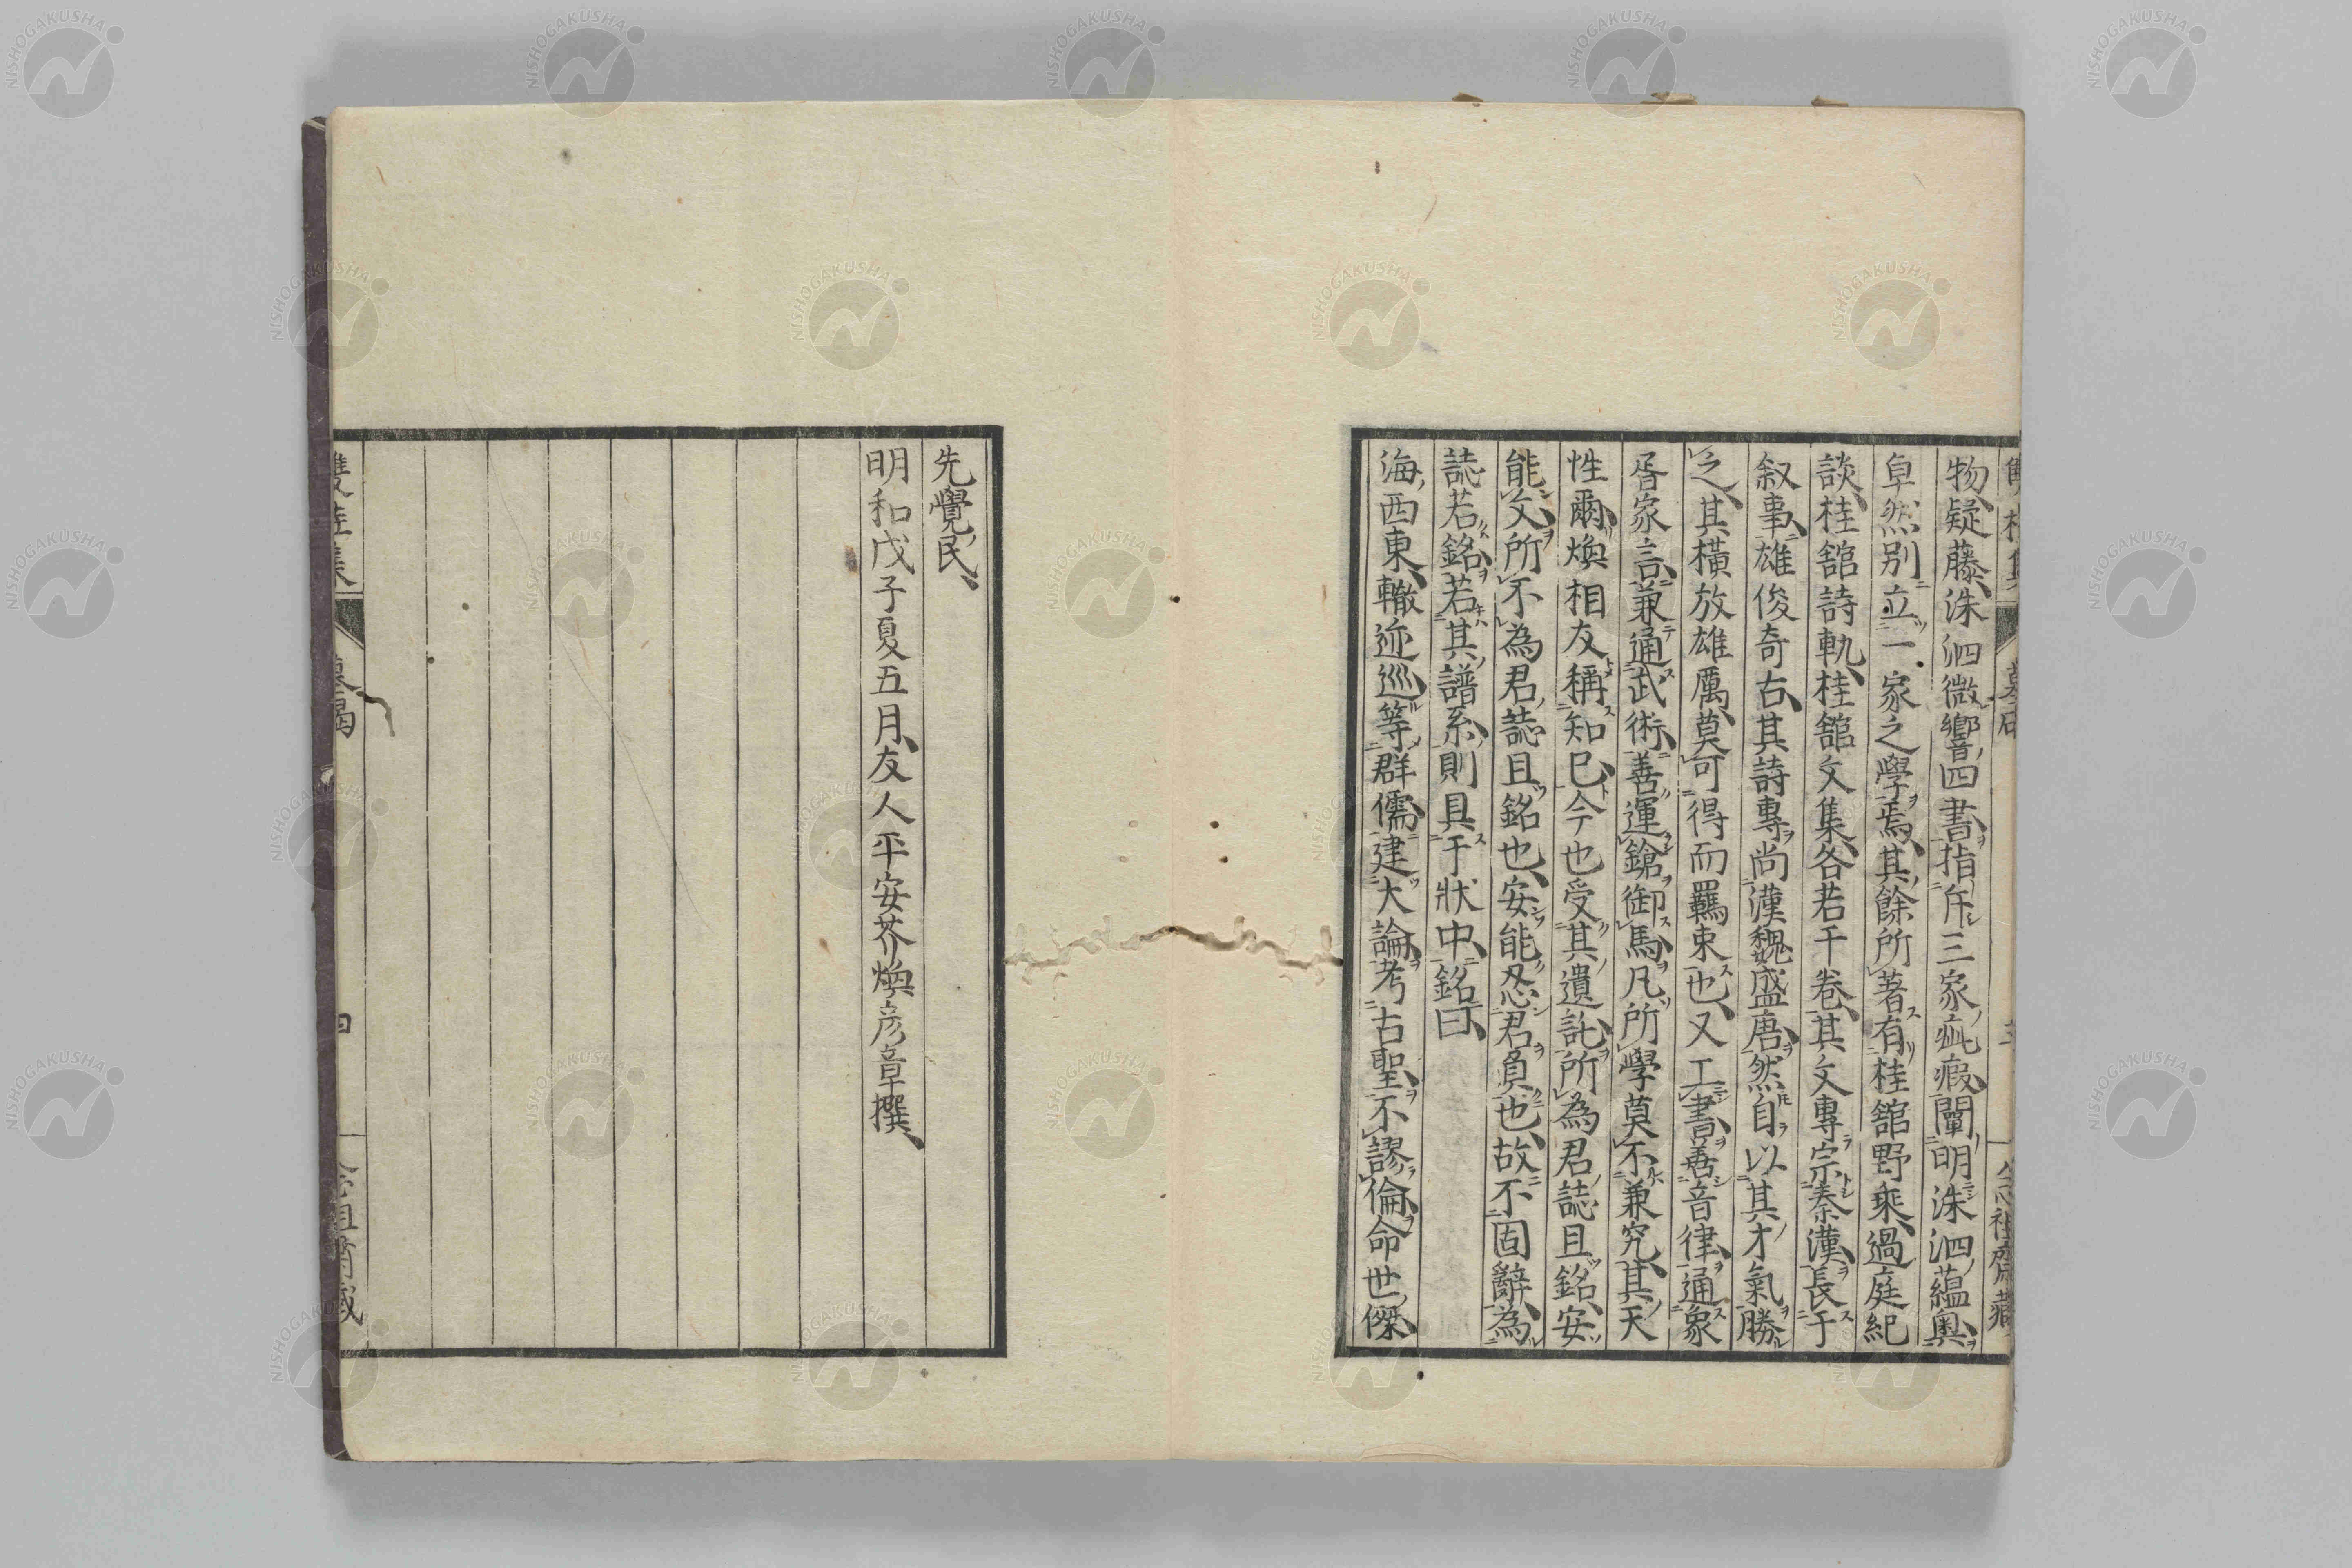 物疑藤洙泗微響四書指斥三家疵瑕闡明洙泗蘊奧
卓然別立一家之學焉其餘所著有桂舘野乘過庭紀
談桂舘詩軌桂舘文集各若干卷其文專宗秦漢長于
叙事雄俊奇古其詩專尚漢魏盛唐然自以其才氣勝
之其橫放雄厲莫可得而羈束也又工書善音律通象
胥家言兼通武術善運鎗御馬凡所學莫不兼究其天
性爾煥相友稱知己今也受其遺託所為君誌且銘安
能文所不為君誌且銘也安能忍君負也故不固辭為
誌若銘若其譜系則具于狀中銘曰
海西東轍迹巡等群儒建大論考古聖不謬倫命世傑
先覺民
明和戊子夏五月友人平安芥煥彥章撰
雙桂集 墓碣 四 念祖齋藏
NISHOGAKUSHA